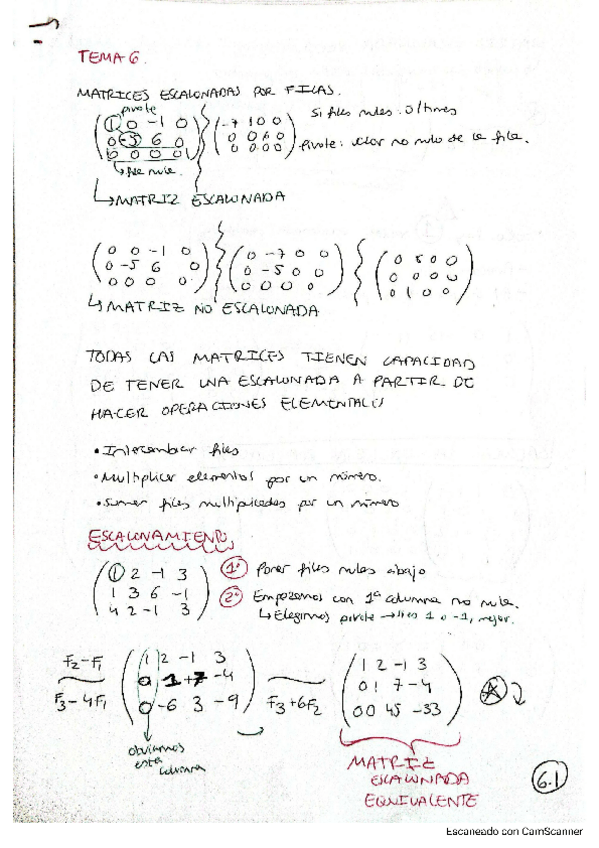 TEMA 6.
MATRICES ESCALONADAS POR FILAS.
pivote
1 0 -1 0
0 -5 6 0
0 0 0 0
-7 1 0 0
0 0 6 0
0 0 0 0
Si filas nulas: últimas
Pivote: valor no nulo de la fila.
fila nula.
MATRIZ ESCALONADA
0 0 -1 0
0 -5 6 0
0 0 0 0
0 -7 0 0
0 -5 0 0
0 0 0 0
0 5 0 0
0 0 0 0
0 1 0 0
MATRIZ NO ESCALONADA
TODAS LAS MATRICES TIENEN CAPACIDAD
DE TENER UNA ESCALONADA A PARTIR DE
HACER OPERACIONES ELEMENTALES
• Intercambiar filas
• Multiplicar elementos por un número.
• Sumar filas multiplicadas por un número
ESCALONAMIENTO
1 2 -1 3
1 3 6 -1
4 2 -1 3
1º Poner filas nulas abajo
2º Empezamos con 1ª columna no nula.
↳ Elegimos pivote → 1 o -1, mejor.
F2-F1
F3-4F1
1 2 -1 3
0 1 +7 -4
0 -6 3 -9
F3+6F2
1 2 -1 3
0 1 7 -4
0 0 45 -33
A
obviamos
esta
columna
MATRIZ
ESCALONADA
EQUIVALENTE
6.1
Escaneado con CamScanner